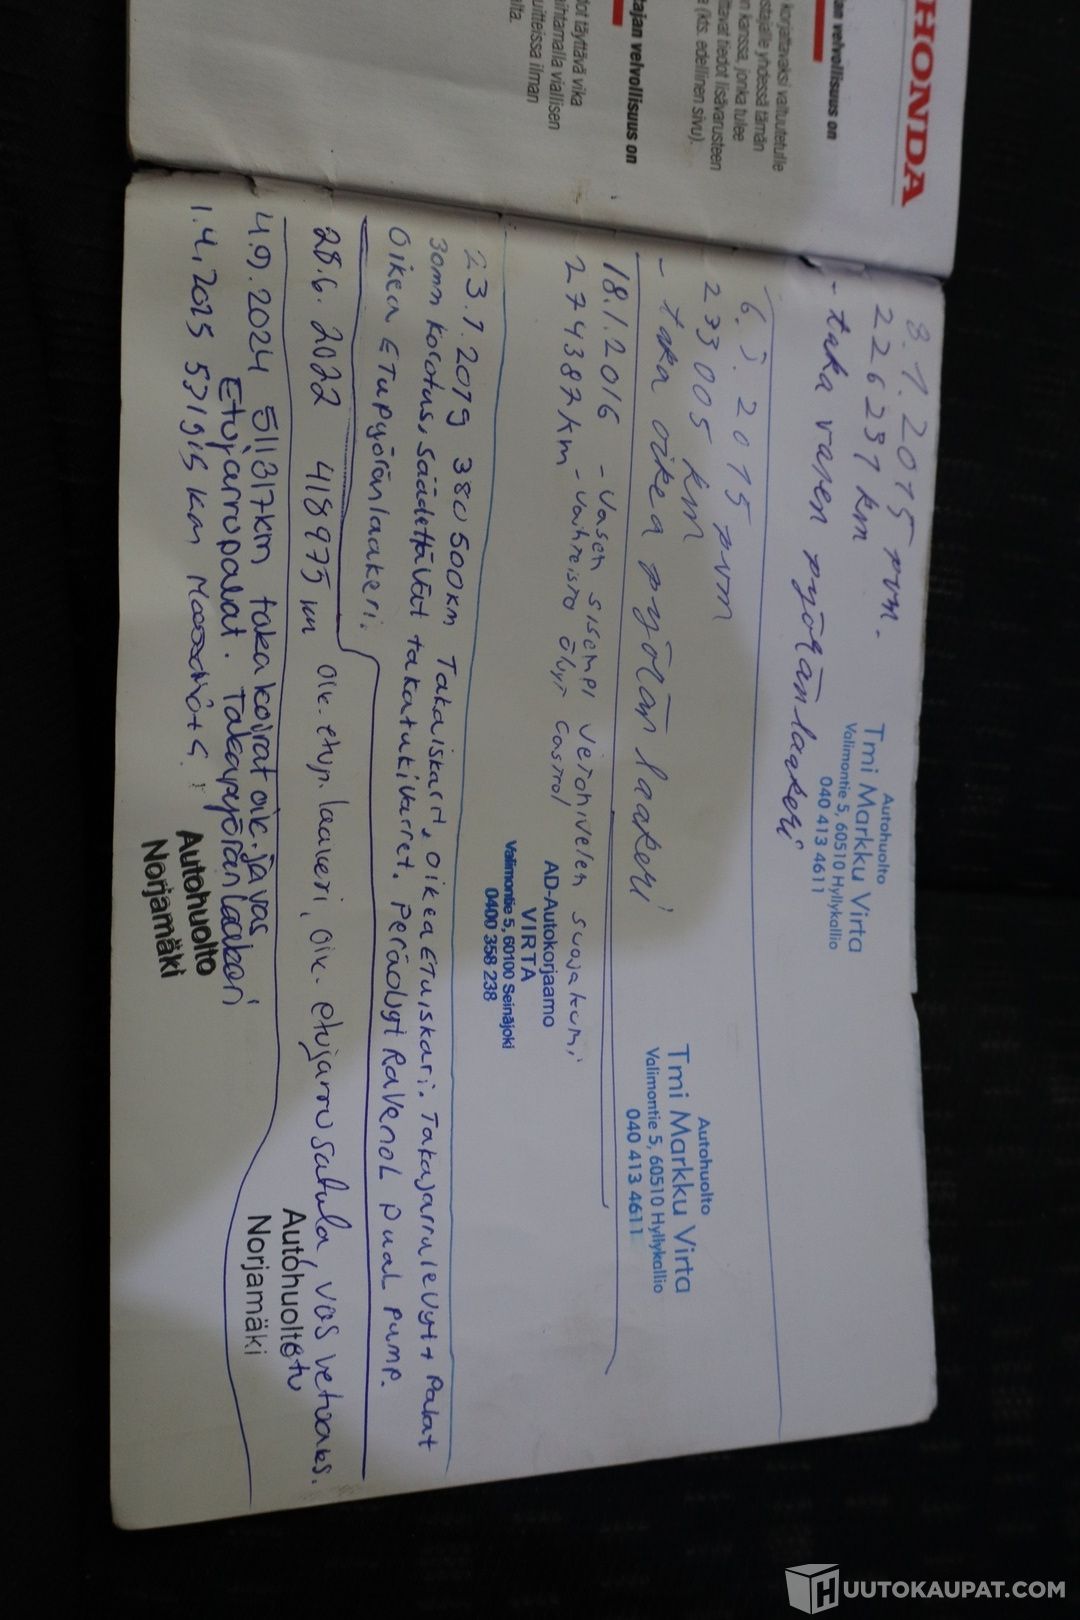 HONDA
an velvollisuus on
korjattavaksi valtuutetulle
stäjälle yhdessä tämän
n kanssa, jonka tulee
ttavat tiedot lisävarusteen
e (kts. edellinen sivu).
tajan velvollisuus on
lot täyttävä vika
aihtamalla viallisen
uitteissa ilman
elta.
8.1.2015 pvm.
226237 km
- taka vasen pyörän laakeri
Autohuolto
Tmi Markku Virta
Valimontie 5, 60510 Hyllykallio
040 413 4611
6.5.2015 pvm
233005 km
- taka oikea pyörän laakeri
Autohuolto
Tmi Markku Virta
Valimontie 5, 60510 Hyllykallio
040 413 4611
18.1.2016 - Vasen sisempi vetonivelen suojakumi
274387 km - Vaihteisto öljyt Castrol
AD-Autokorjaamo
VIRTA
Valimontie 5, 60100 Seinäjoki
0400 358 238
23.7.2019 380500km Takaiskarit, oikea Etuiskari. Takajarrulevyt + Palat
30mm korotus, säädettävät takatukivarret. Peräöljyt Ravenol Dual Pump.
Oikea Etupyöränlaakeri.
28.6.2022 418975 km oik. etup. laakeri, oik. etujarrusatula, vas vetoaks.
Autohuolto
Norjamäki
4.9.2024 511317km takakoirat oik. ja vas
Etujarrupalat. Takapyörän laakeri
1.4.2025 531915 km
Autohuolto
Norjamäki
HUUTOKAUPAT.COM